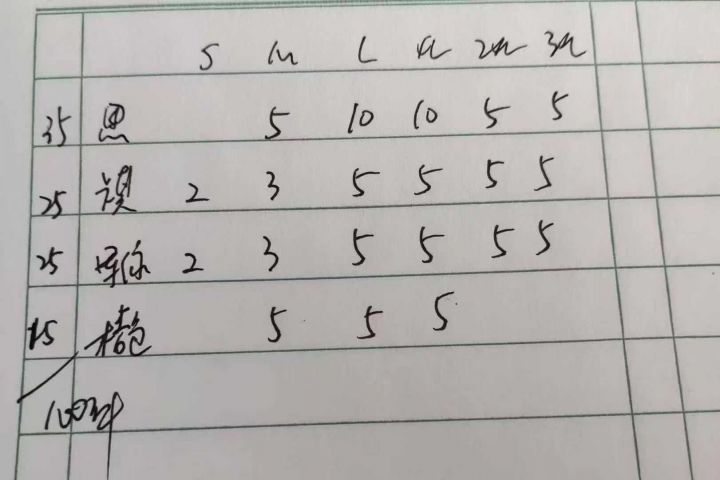 S M L XL 2XL 3XL
35 黑 5 10 10 5 5
25 2 3 5 5 5 5
25 2 3 5 5 5 5
15 橙色 5 5 5
100